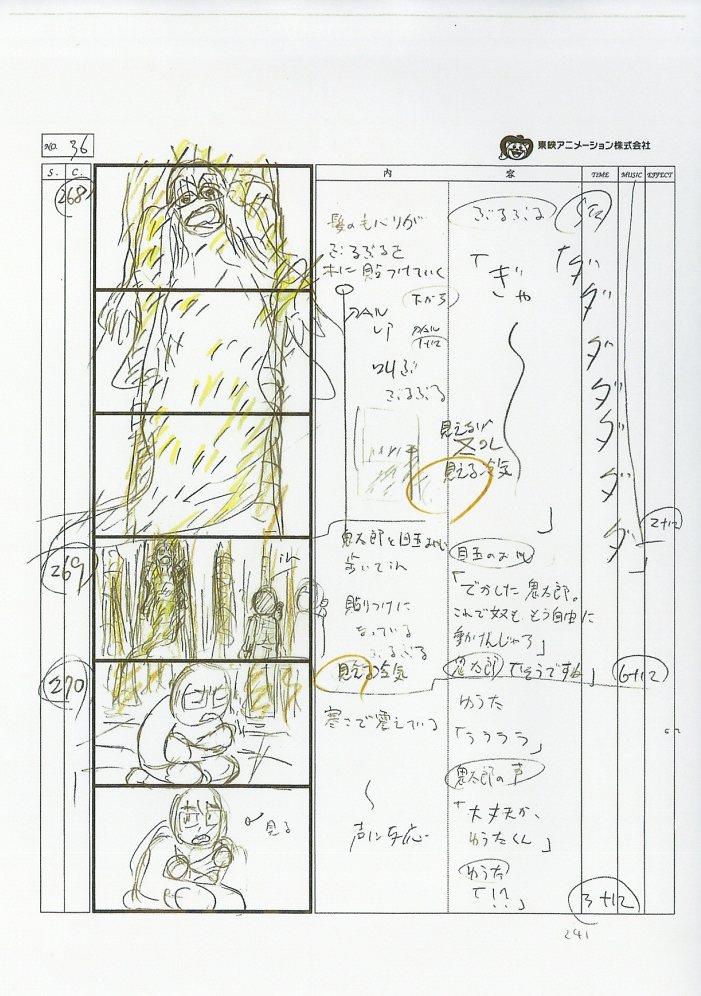 NO. 36
東映アニメーション株式会社
S. C. 内 容 TIME MUSIC EFFECT
268
髪のもバリが
ぶるぶるを
木に貼つけていく
下から
PAN
UP
PAN
1+12
叫ぶ
ぶるぶる
ぶるぶる
「ぎゃ
」
「ダ
ダ
ダ
ダ
ダ
ダ
ダ
」
見える冷気
2+12
269
鬼太郎と目玉おやじ
歩いてin
in
貼りつけに
なっている
ぶるぶる
見える冷気
目玉のおやじ
「でかした鬼太郎。
これで奴も、もう自由に
動かけんじゃろ」
鬼太郎「そうですね」
6+12
270
寒さで震えている
ゆうた
「うううう」
鬼太郎の声
「大丈夫か、
ゆうたくん」
見る
声に反応
ゆうた
「!?」
3+12
241